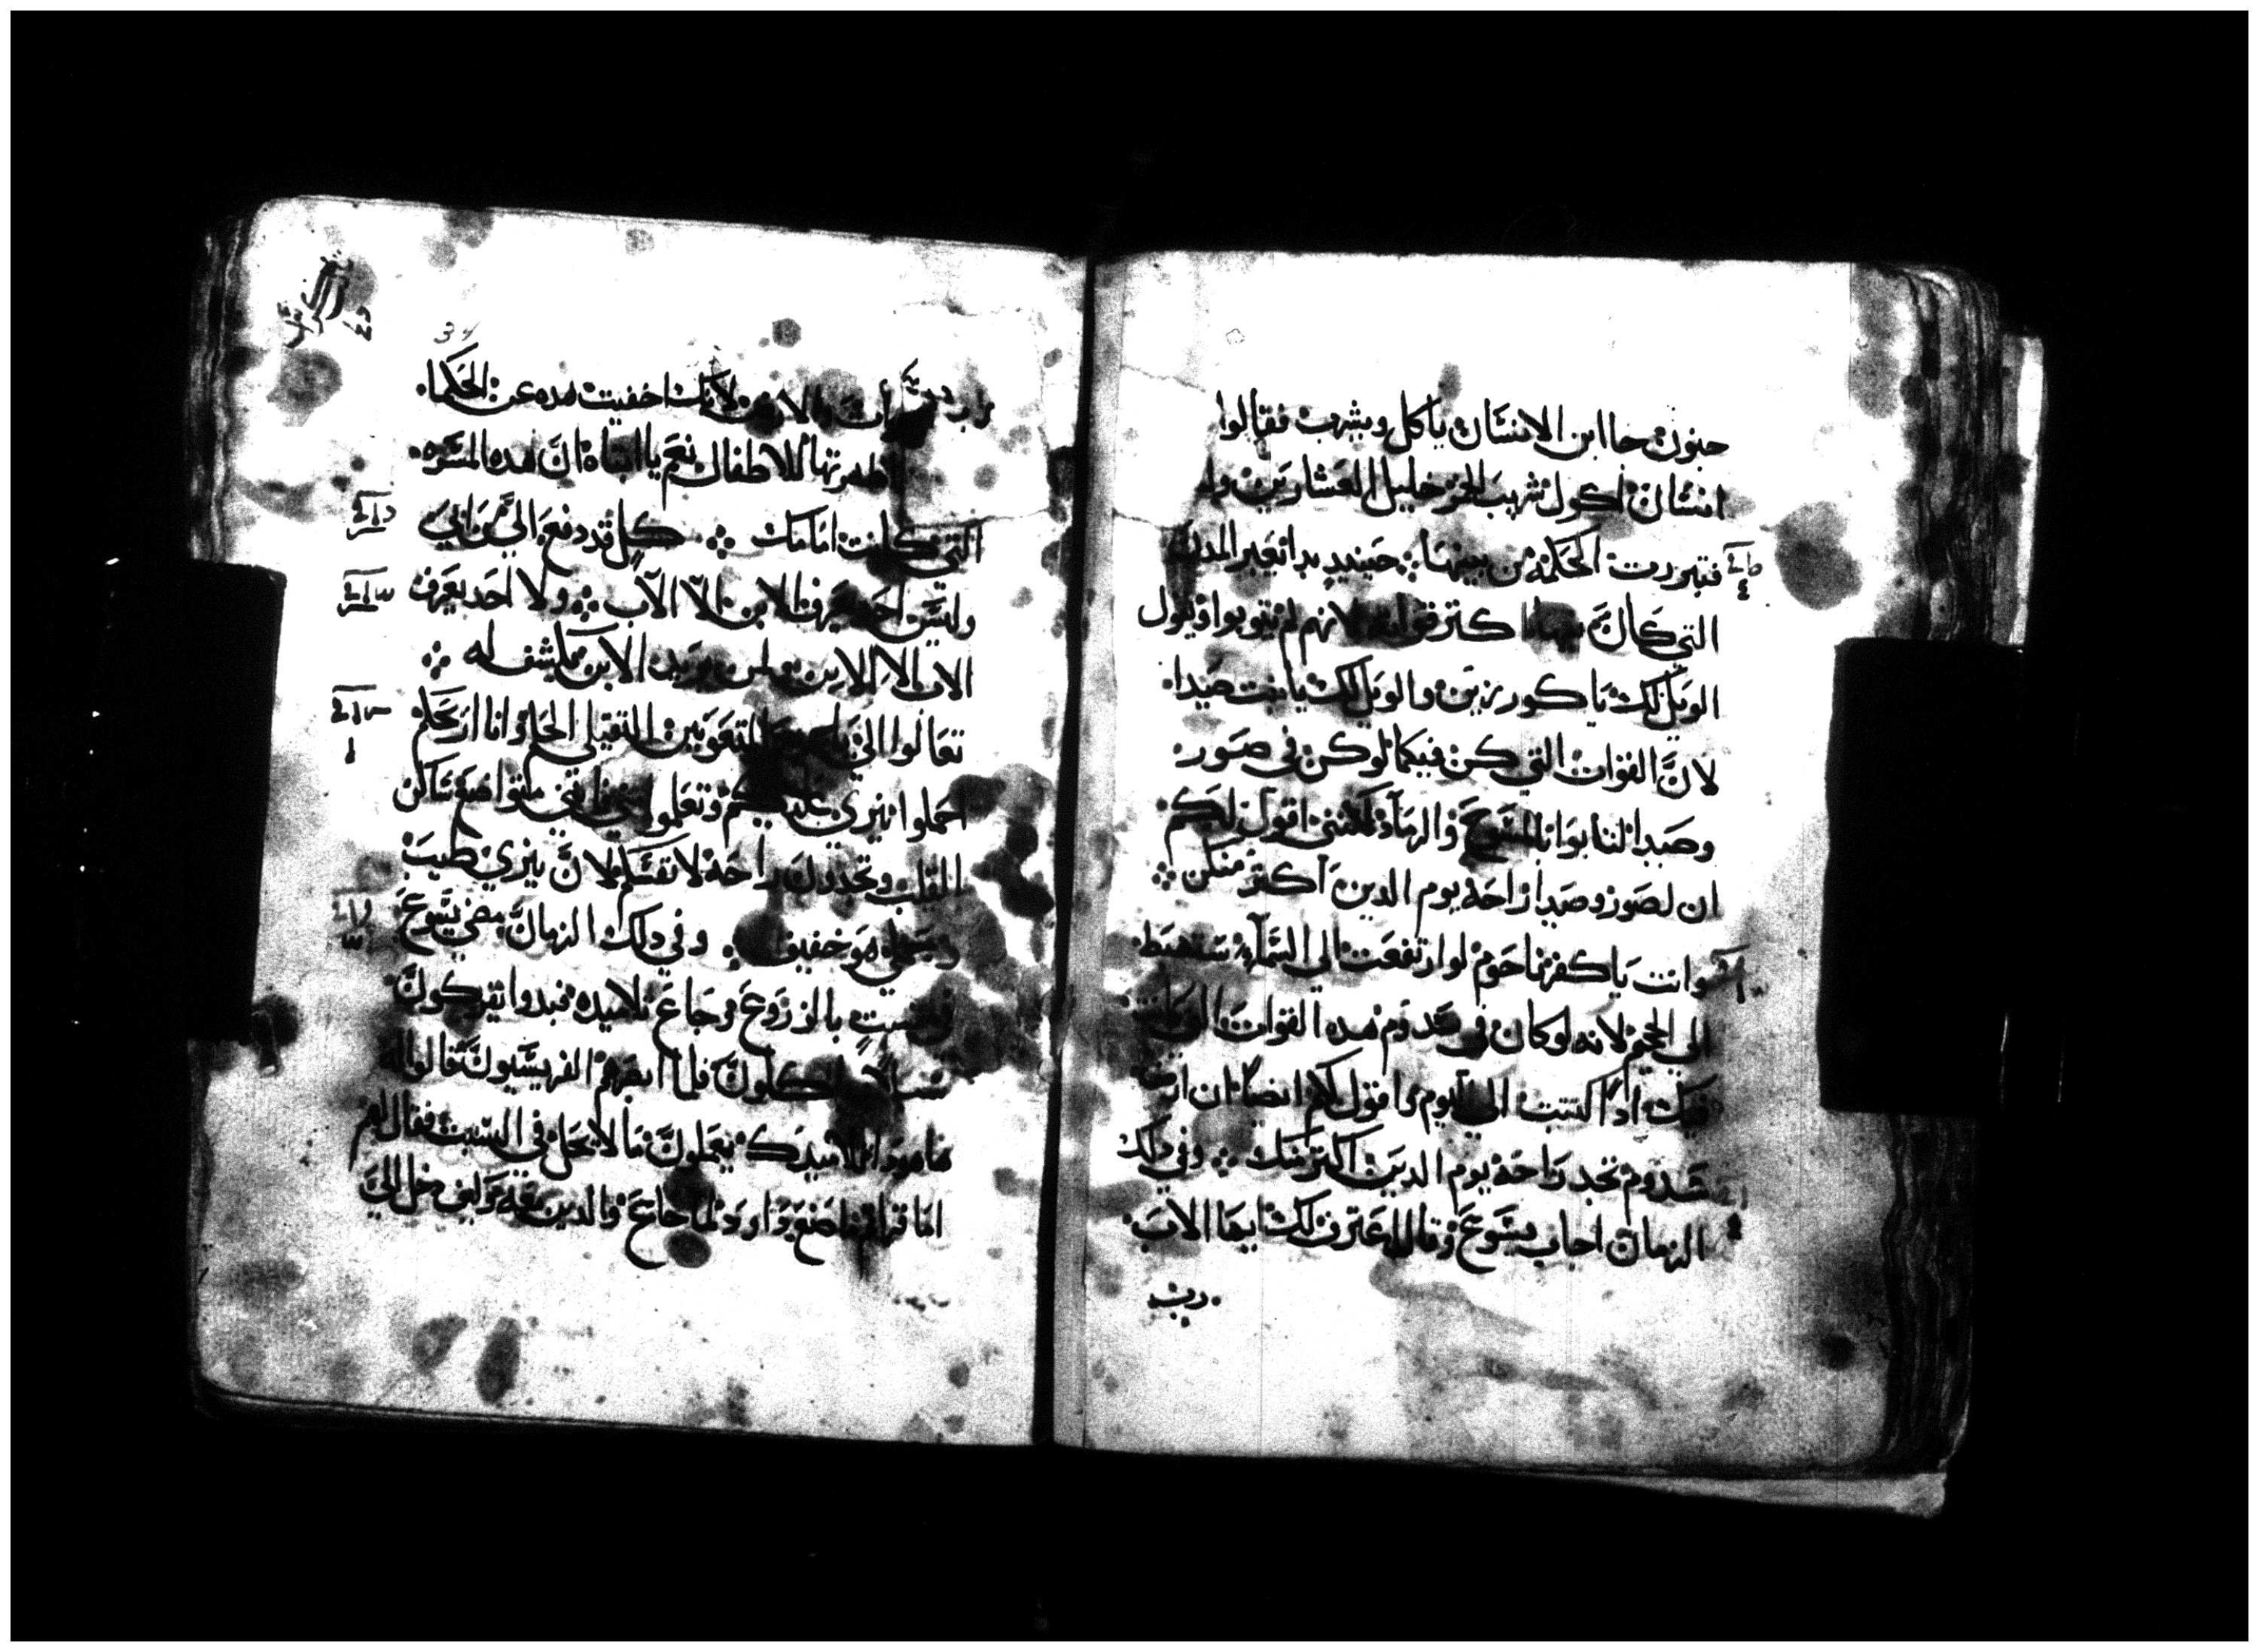 جنون جا ابن الانسان ياكل ويشرب فقالوا
انسان اكول شريب الخمر خليل العشارين
فتبررت الحكمة من بينها حينيد بدا يعير المدن
التي كان كتر قواته لانهم لم يتوبوا ويقول
الويل لك يا كورزين والويل لك يا بيت صيدا
لان القوات التي كن فيكما لوكن في صور
وصيدا لتابوا بالمسوح والرماد لكنني اقول لكم
ان لصور وصيدا راحة يوم الدين اكتر منكن
وانت يا كفرناحوم لو ارتفعت الي السما ستهبط
الي الجحيم لانه لو كان في سدوم هده القوات
فيك ادا لتبتت الي اليوم واقول لكم ايضا ان ارض
سدوم تجد راحة يوم الدين اكتر منك وفي دلك
الزمان اجاب يسوع وقال اعترف لك ايها الاب
رب
34
رب والارض لانك اخفيت هده عن الحكما
اظهرتها للاطفال نعم يا ابتاه ان هده المسره
التي كانت امامك كل قد دفع الي من ابي
وليس احد يعرف الابن الا الاب ولا احد يعرف
الاب الا الابن ولمن يريد الابن يكشف له
تعالوا الي المتعوبين التقيلي الحمل وانا اريحكم
احملوا نيري عليكم وتعلموا مني فانني متواضع ساكن
القلب وتجدون راحة لانفسكم لان نيري طيب
وحملي هو خفيف وفي دلك الزمان مضي يسوع
بالزروع وجاع تلاميده فبدوا يفركون
سنابل وياكلون فلما ابصرهم الفريسيون قالوا له
ها هودا تلاميدك يعملون ما لا يحل في السبت فقال لهم
اما قراتم ما صنع داود لما جاع والدين معه كيف دخل الي